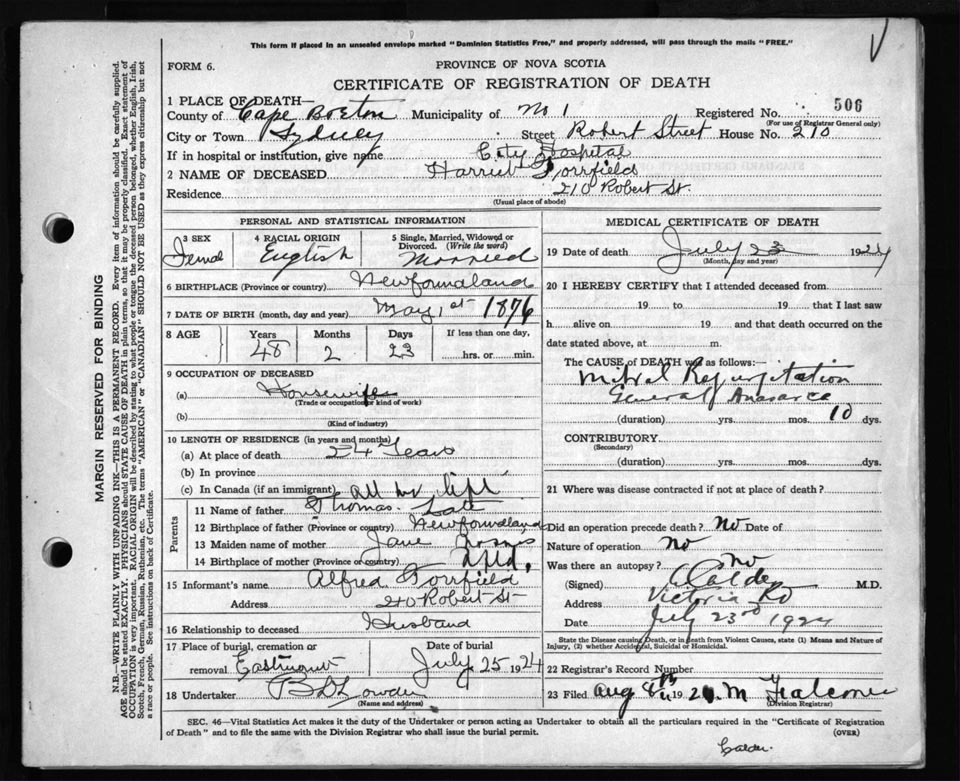 This form if placed in an unsealed envelope marked "Dominion Statistics Free," and properly addressed, will pass through the mails "FREE."
FORM 6.
PROVINCE OF NOVA SCOTIA
CERTIFICATE OF REGISTRATION OF DEATH
1 PLACE OF DEATH—
County of Cape Breton Municipality of No 1 Registered No. 506
(For use of Registrar General only)
City or Town Sydney Street Robert Street House No. 210
If in hospital or institution, give name City Hospital
2 NAME OF DECEASED Harriet
Residence 210 Robert St.
(Usual place of abode)
PERSONAL AND STATISTICAL INFORMATION
3 SEX 4 RACIAL ORIGIN 5 Single, Married, Widowed or Divorced. (Write the word)
English Married
6 BIRTHPLACE (Province or country) Newfoundland
7 DATE OF BIRTH (month, day and year) May 1st 1876
8 AGE Years Months Days If less than one day,
48 2 23 hrs. or min.
9 OCCUPATION OF DECEASED
(a) Housewife
(Trade or occupation or kind of work)
(b)
(Kind of industry)
10 LENGTH OF RESIDENCE (in years and months)
(a) At place of death 24 Years
(b) In province
(c) In Canada (if an immigrant) all her life
Parents
11 Name of father Thomas
12 Birthplace of father (Province or country) Newfoundland
13 Maiden name of mother Jane
14 Birthplace of mother (Province or country) Nfld.
15 Informant's name Alfred
Address 210 Robert St
16 Relationship to deceased Husband
17 Place of burial, cremation or removal Eastmount Date of burial July 25 1924
18 Undertaker
(Name and address)
MEDICAL CERTIFICATE OF DEATH
19 Date of death July 23 1924
(Month, day and year)
20 I HEREBY CERTIFY that I attended deceased from
19 to 19 that I last saw
h alive on 19 and that death occurred on
date stated above, at m.
The CAUSE OF DEATH was as follows:
Mitral Regurgitation
General Anasarca
(duration) yrs. mos. 10 dys.
CONTRIBUTORY
(Secondary)
(duration) yrs. mos. dys.
21 Where was disease contracted if not at place of death?
Did an operation precede death? No Date of
Nature of operation No
Was there an autopsy? No
(Signed) Calder M.D.
Address Victoria Rd
Date July 23rd 1924
State the Disease causing Death, or in death from Violent Causes, state (1) Means and Nature of Injury, (2) whether Accidental, Suicidal or Homicidal.
22 Registrar's Record Number
23 Filed Aug 8th 19
(Division Registrar)
SEC. 46—Vital Statistics Act makes it the duty of the Undertaker or person acting as Undertaker to obtain all the particulars required in the "Certificate of Registration
of Death" and to file the same with the Division Registrar who shall issue the burial permit. (OVER)
Calder.
MARGIN RESERVED FOR BINDING
N.B.—WRITE PLAINLY WITH UNFADING INK—THIS IS A PERMANENT RECORD. Every item of information should be carefully supplied.
AGE should be stated EXACTLY. PHYSICIANS should STATE CAUSE OF DEATH in plain terms, so that it may be properly classified. Exact statement of
OCCUPATION is very important. RACIAL ORIGIN will be described by stating to what people or tongue the deceased person belonged, whether English, Irish,
Scotch, French, German, Russian, Ruthenian, etc. The terms "AMERICAN" or "CANADIAN" SHOULD NOT BE USED as they express citizenship but not
a race or people. See instructions on back of Certificate.